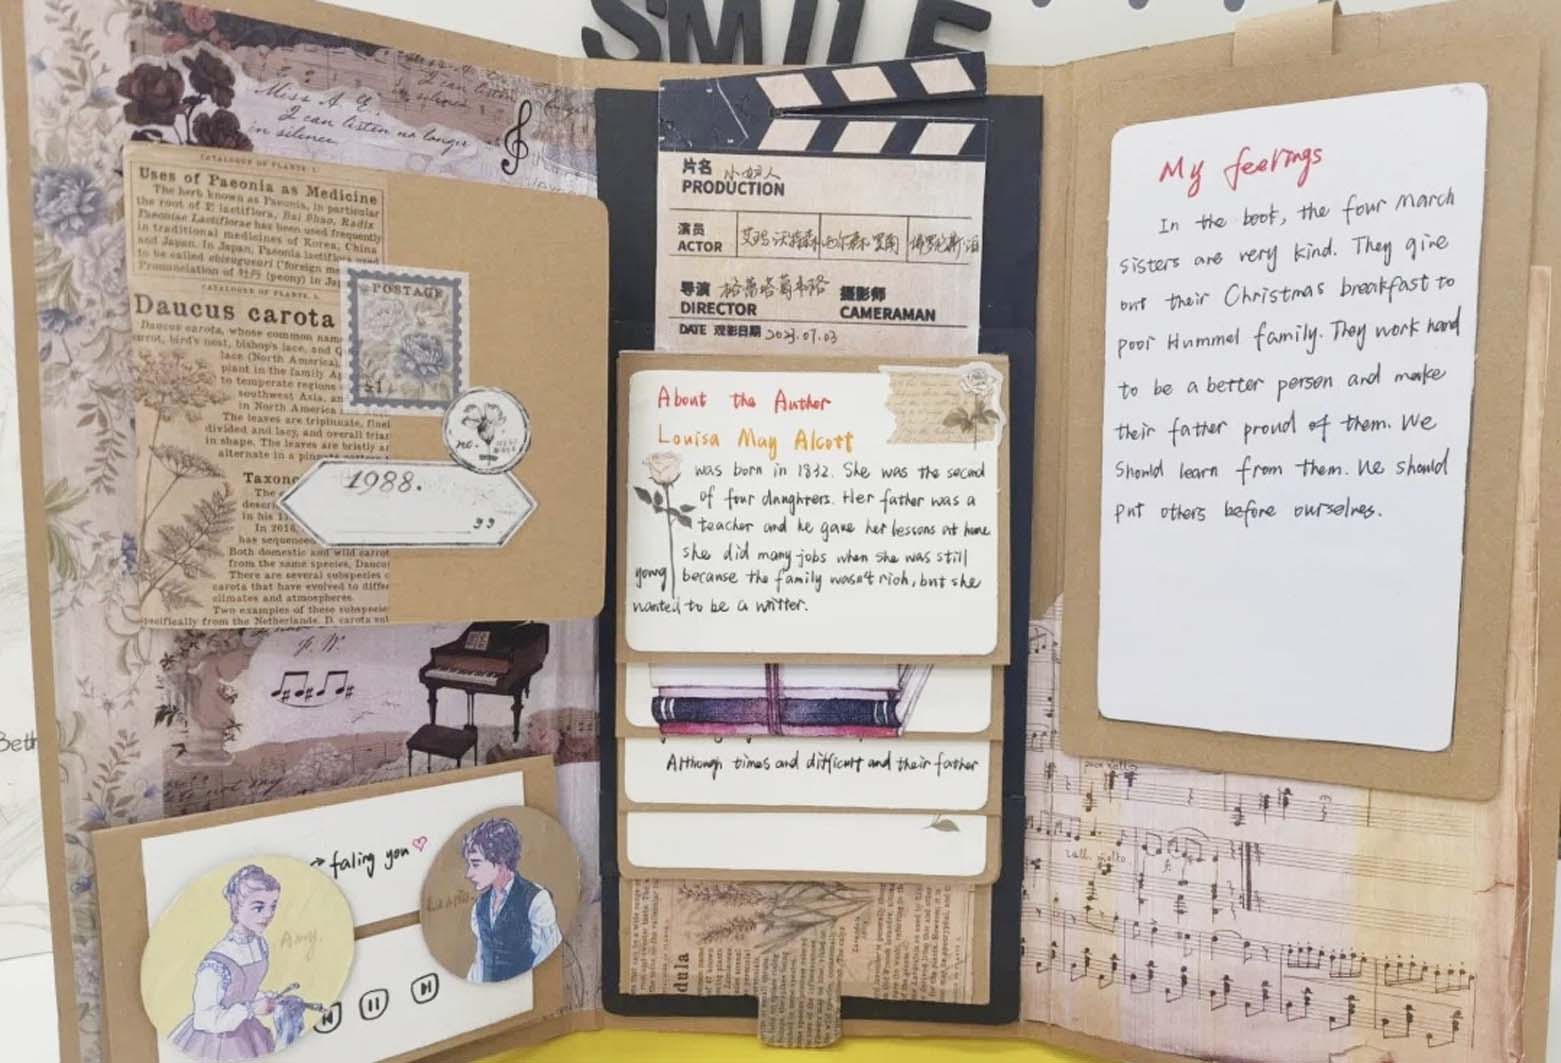 SMILE
Miss A
I can listen no longer
in silence
CATALOGUE OF PLANTS 1.
Uses of Paeonia as Medicine
The herb known as Paeonia, in particular
the root of P. lactiflora, Bai Shao, Radix
Paeoniae Lactiflorae has been used frequently
in traditional medicines of Korea, China
and Japan. In Japan, Paeonia lactiflora used
to be called ebisugusuri ("foreign me
Pronunciation of 牡丹 (peony) in Jap
CATALOGUE OF PLANTS 1.
Daucus carota
Daucus carota, whose common nam
carrot, bird's nest, bishop's lace, and Q
lace (North America),
plant in the family Ap
to temperate regions
southwest Asia, an
in North America
The leaves are tripinnate, finel
divided and lacy, and overall trian
in shape. The leaves are bristly an
alternate in a pinna
Taxono
The c
descri
in his 17
In 2016,
has sequence
Both domestic and wild carrot
from the same species, Daucu
There are several subspecies o
carota that have evolved to diffe
climates and atmospheres.
Two examples of these subspecie
specifically from the Netherlands. D. carota sub
POSTAGE
no.
1988.
„
Beth
faling you
Amy.
片名 小妇人
PRODUCTION
演员
ACTOR
艾玛·沃特森
西尔莎·罗南
佛罗伦斯·珀
导演 格蕾塔葛韦格 摄影师
DIRECTOR CAMERAMAN
DATE 观影日期 2023.07.03
About the Author
Louisa May Alcott
was born in 1832. She was the second
of four daughters. Her father was a
teacher and he gave her lessons at home
she did many jobs when she was still
young because the family wasn't rich, but she
wanted to be a writter.
Although times and difficult and their father
dula
My feelings
In the book, the four March
sisters are very kind. They give
out their Christmas breakfast to
poor Hummel family. They work hard
to be a better person and make
their father proud of them. We
should learn from them. We should
put others before ourselves.